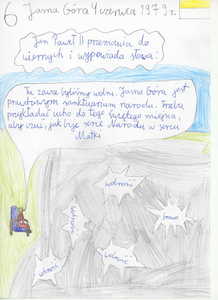 6 Jasna Góra 4 czerwca 1979 r.
Jan Paweł II przemawia do
wiernych i wypowiada słowa:
Tu zawsze byliśmy wolni. Jasna Góra jest
prawdziwym sanktuarium narodu. Trzeba
przykładać ucho do tego świętego miejsca,
aby czuć, jak bije serce Narodu w sercu
Matki
wolność